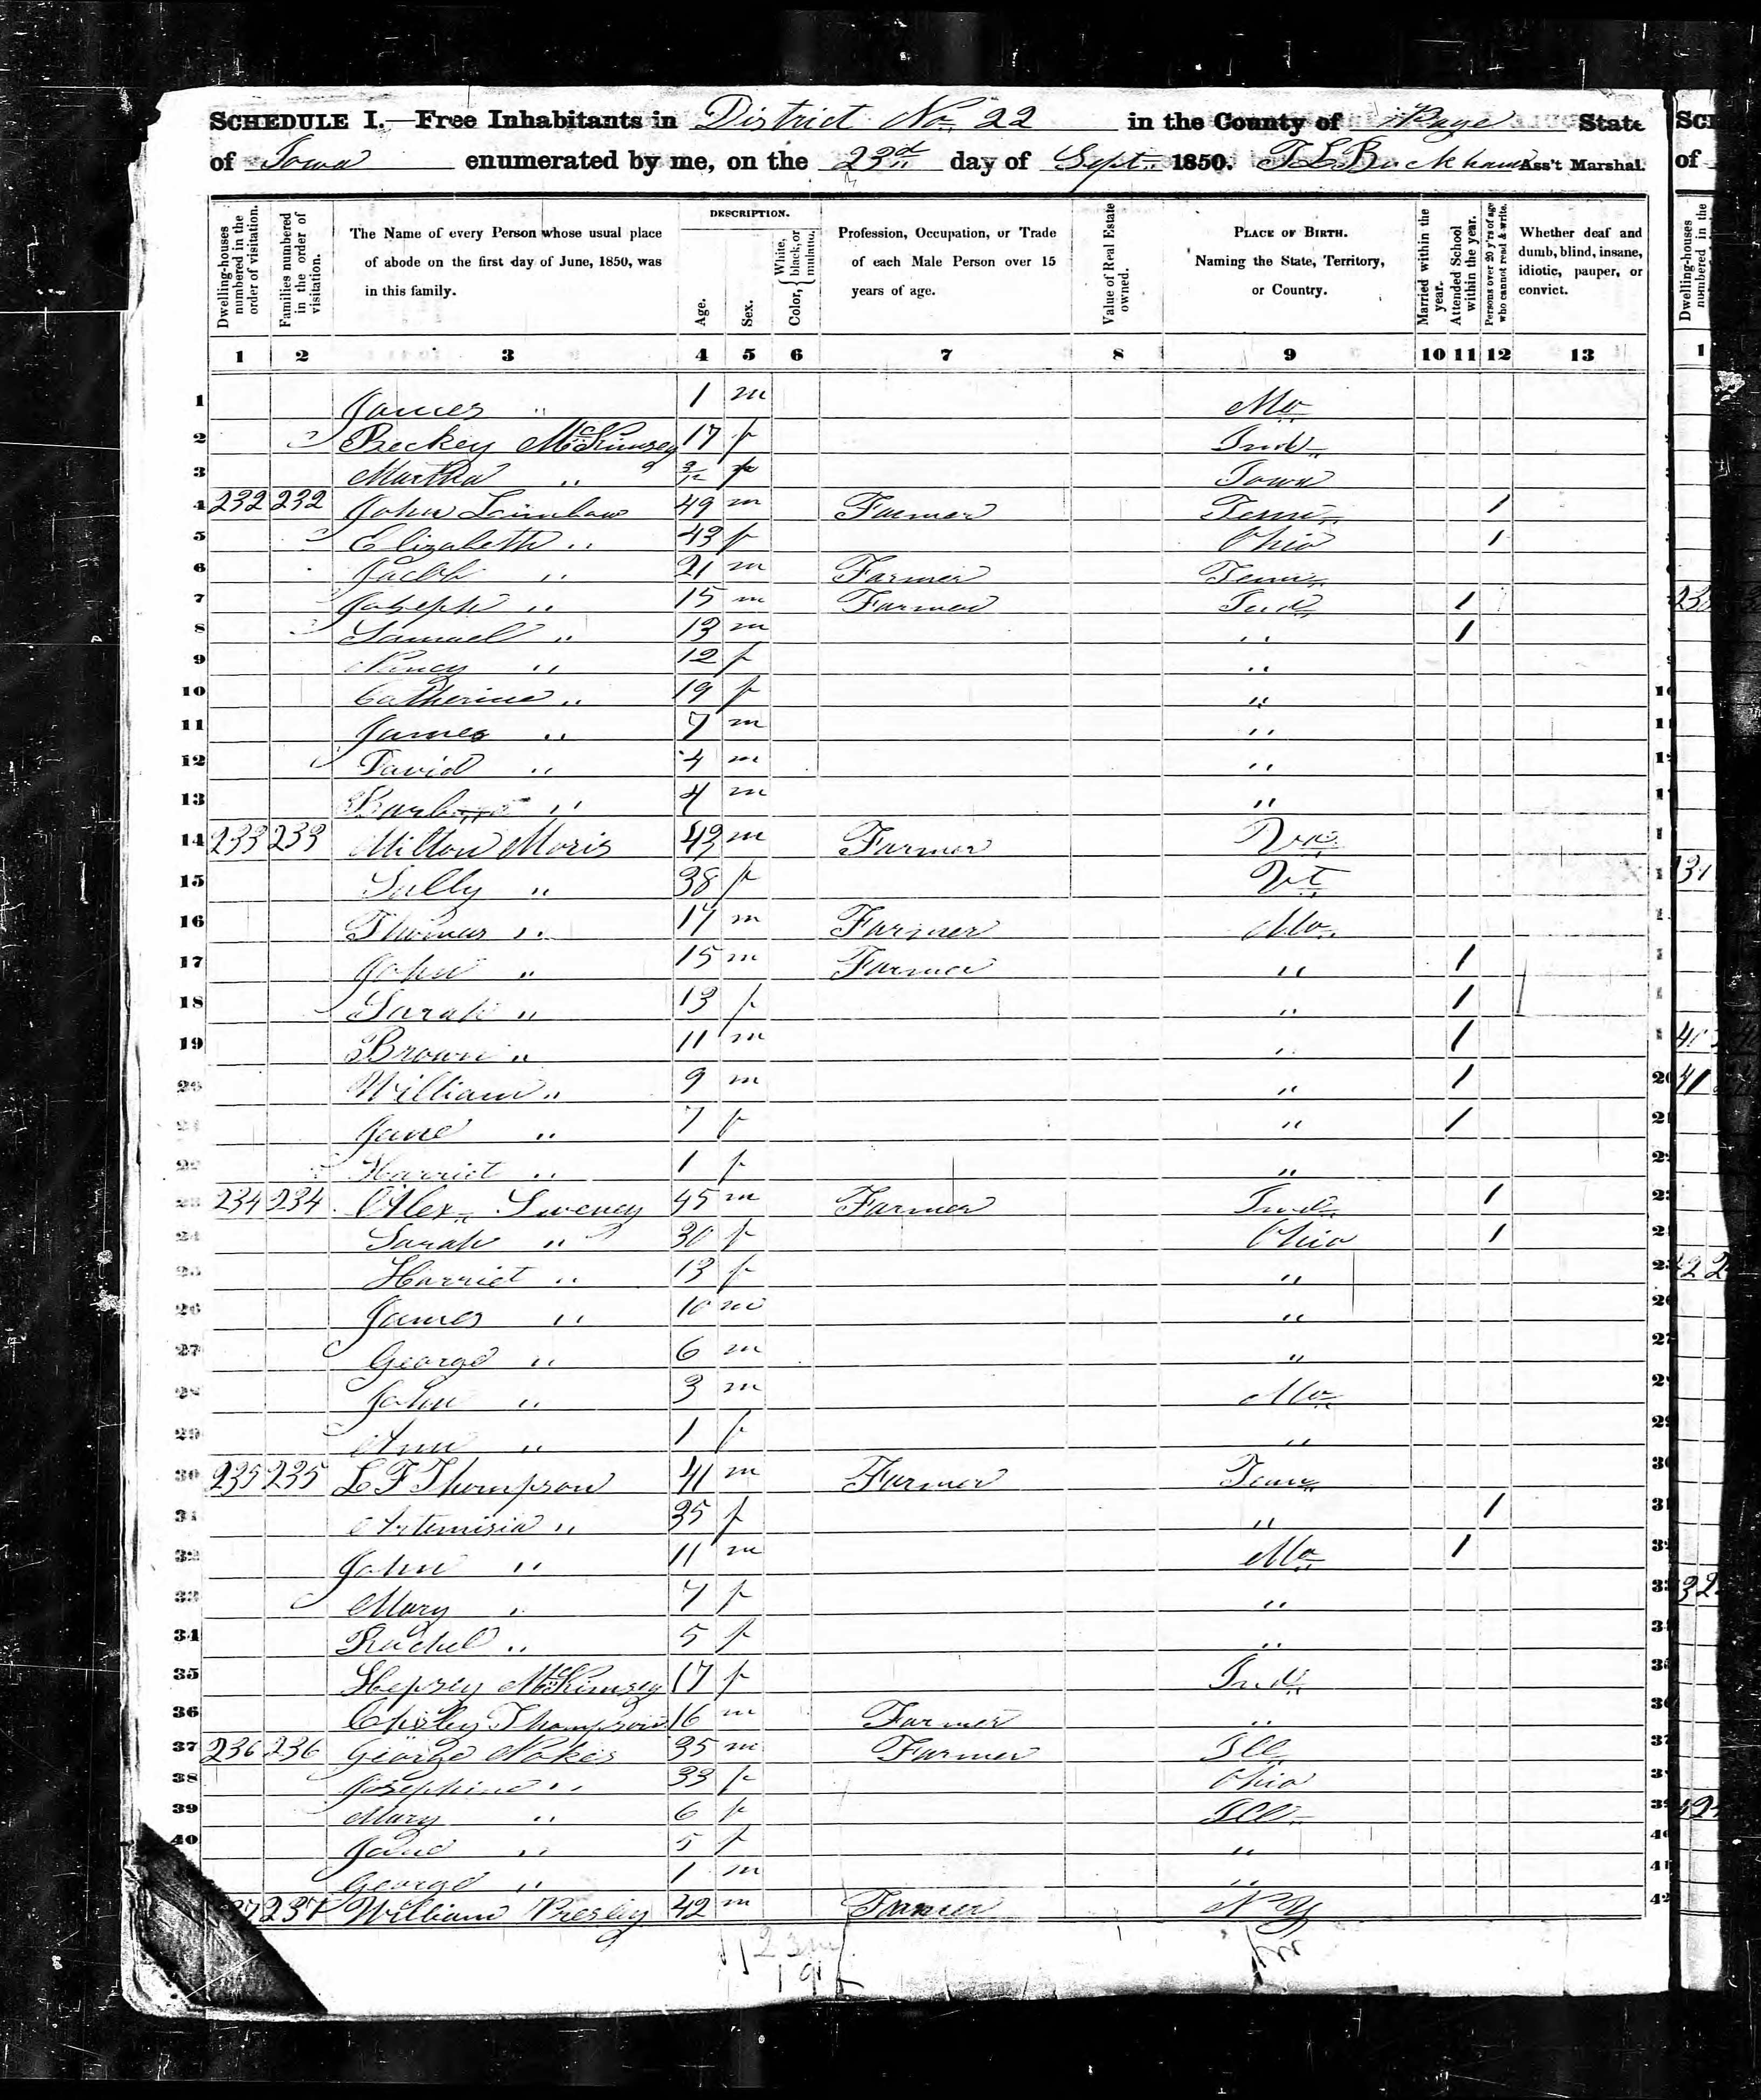 SCHEDULE I.—Free Inhabitants in District No. 22 in the County of Page State
of Iowa enumerated by me, on the 23d day of Sept. 1850. Ass't Marshal.
Dwelling-houses numbered in the order of visitation.
Families numbered in the order of visitation.
The Name of every Person whose usual place of abode on the first day of June, 1850, was in this family.
DESCRIPTION.
Age.
Sex.
Color, { White, black, or mulatto.
Profession, Occupation, or Trade of each Male Person over 15 years of age.
Value of Real Estate owned.
PLACE OF BIRTH. Naming the State, Territory, or Country.
Married within the year.
Attended School within the year.
Persons over 20 y'rs of age who cannot read & write.
Whether deaf and dumb, blind, insane, idiotic, pauper, or convict.
1 2 3 4 5 6 7 8 9 10 11 12 13
1 James " 1 m Mo
2 Beckey McKimsey 17 f Ind
3 Martha " 3/12 f Iowa
4 232 232 John 49 m Farmer Tenn 1
5 Elizabeth " 43 f Ohio 1
6 Jacob " 21 m Farmer Tenn
7 Joseph " 15 m Farmer Ind 1
8 Samuel " 13 m " 1
9 Nancy " 12 f "
10 Catherine " 19 f "
11 James " 7 m "
12 David " 4 m "
13 " 4 m "
14 233 233 Milton Moris 43 m Farmer
15 Sally " 38 f Vt
16 Thomas " 17 m Farmer Mo
17 John " 15 m Farmer " 1
18 Sarah " 13 f " 1
19 Brown " 11 m " 1
20 William " 9 m " 1
21 Jane " 7 f " 1
22 Harriet " 1 f "
23 234 234 Alex Sweney 45 m Farmer Ind 1
24 Sarah " 30 f Ohio 1
25 Harriet " 13 f "
26 James " 10 m "
27 George " 6 m "
28 John " 3 m Mo
29 Ann " 1 f "
30 235 235 L F Thompson 41 m Farmer Tenn
31 Artemisia " 35 f " 1
32 John " 11 m Mo 1
33 Mary " 7 f "
34 Rachel " 5 f "
35 Hepsey McKimsey 17 f Ind
36 Thompson 16 m Farmer "
37 236 236 George Nokes 35 m Farmer Ill
38 Josephine " 33 f Ohio
39 Mary " 6 f Ill
40 Jane " 5 f "
George " 1 m "
237 William Presley 42 m Farmer N Y
23 m
19 f